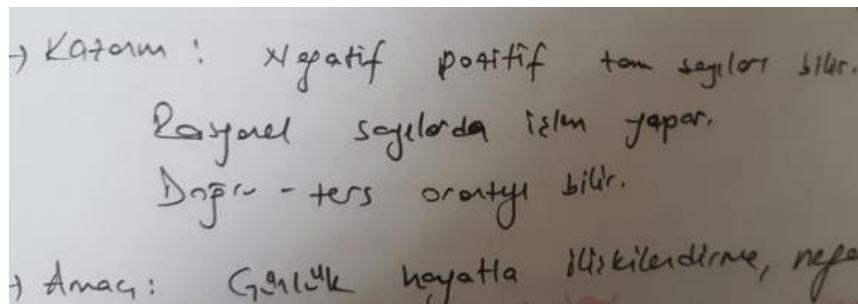 → Kazanım : Negatif pozitif tam sayıları bilir.
Rasyonel sayılarda işlem yapar.
Doğru - ters orantıyı bilir.
→ Amaç : Günlük hayatla ilişkilendirme,